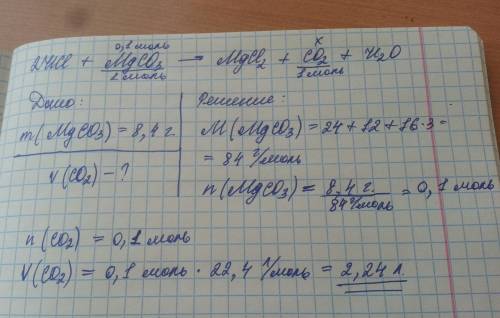 0,1 моль x
2HCl + MgCO3 → MgCl2 + CO2 + H2O
1 моль 1 моль
Дано:
m(MgCO3) = 8,4 г.
V(CO2) - ?
Решение:
M(MgCO3) = 24 + 12 + 16·3 =
= 84 г/моль
n(MgCO3) = 8,4 г. / 84 г/моль = 0,1 моль
n(CO2) = 0,1 моль
V(CO2) = 0,1 моль · 22,4 л/моль = 2,24 л.